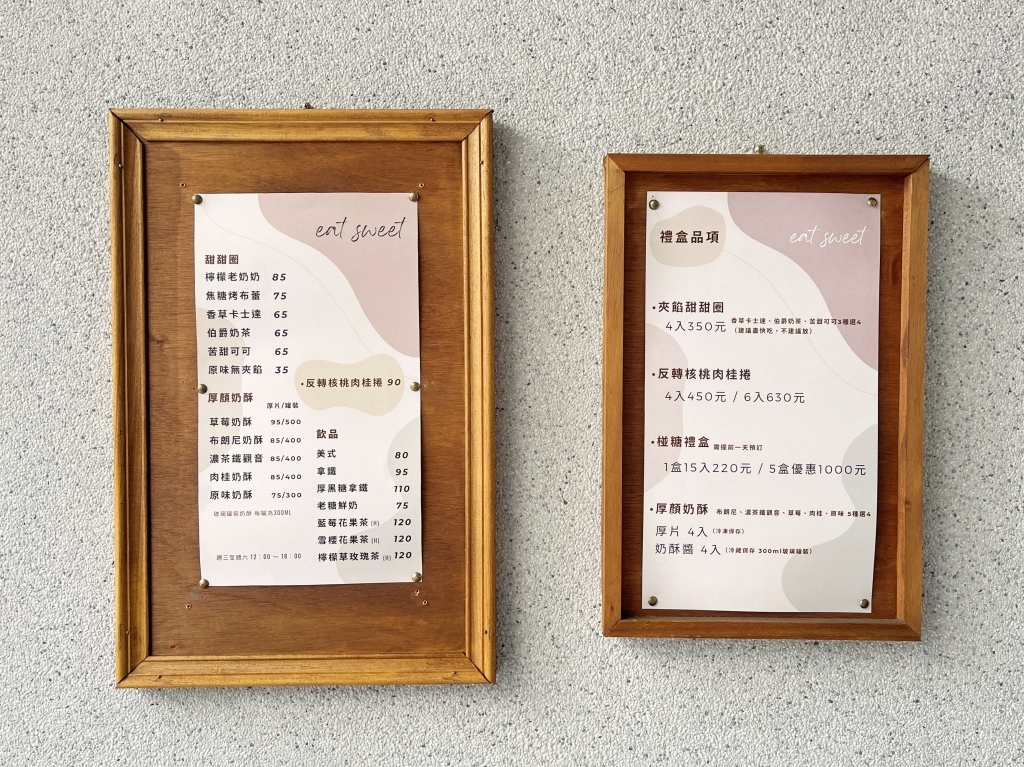 eat sweet
甜甜圈
檸檬老奶奶 85
焦糖烤布蕾 75
香草卡士達 65
伯爵奶茶 65
苦甜可可 65
原味無夾餡 35
•反轉核桃肉桂捲 90
厚顏奶酥 厚片/罐裝
草莓奶酥 95/500
布朗尼奶酥 85/400
濃茶鐵觀音 85/400
肉桂奶酥 85/400
原味奶酥 75/300
玻璃罐裝奶酥 每罐為300ML
週三至週六 12：00 ~ 18：00
飲品
美式 80
拿鐵 95
厚黑糖拿鐵 110
老糖鮮奶 75
藍莓花果茶(H) 120
雪櫻花果茶(H) 120
檸檬草玫瑰茶(H) 120
禮盒品項
eat sweet
•夾餡甜甜圈
4入350元 香草卡士達、伯爵奶茶、苦甜可可3種選4
（建議盡快吃，不建議放）
•反轉核桃肉桂捲
4入450元 / 6入630元
•椪糖禮盒 需提前一天預訂
1盒15入220元 / 5盒優惠1000元
•厚顏奶酥 布朗尼、濃茶鐵觀音、草莓、肉桂、原味 5種選4
厚片 4入（冷凍保存）
奶酥醬 4入（冷藏保存 300ml玻璃罐裝）